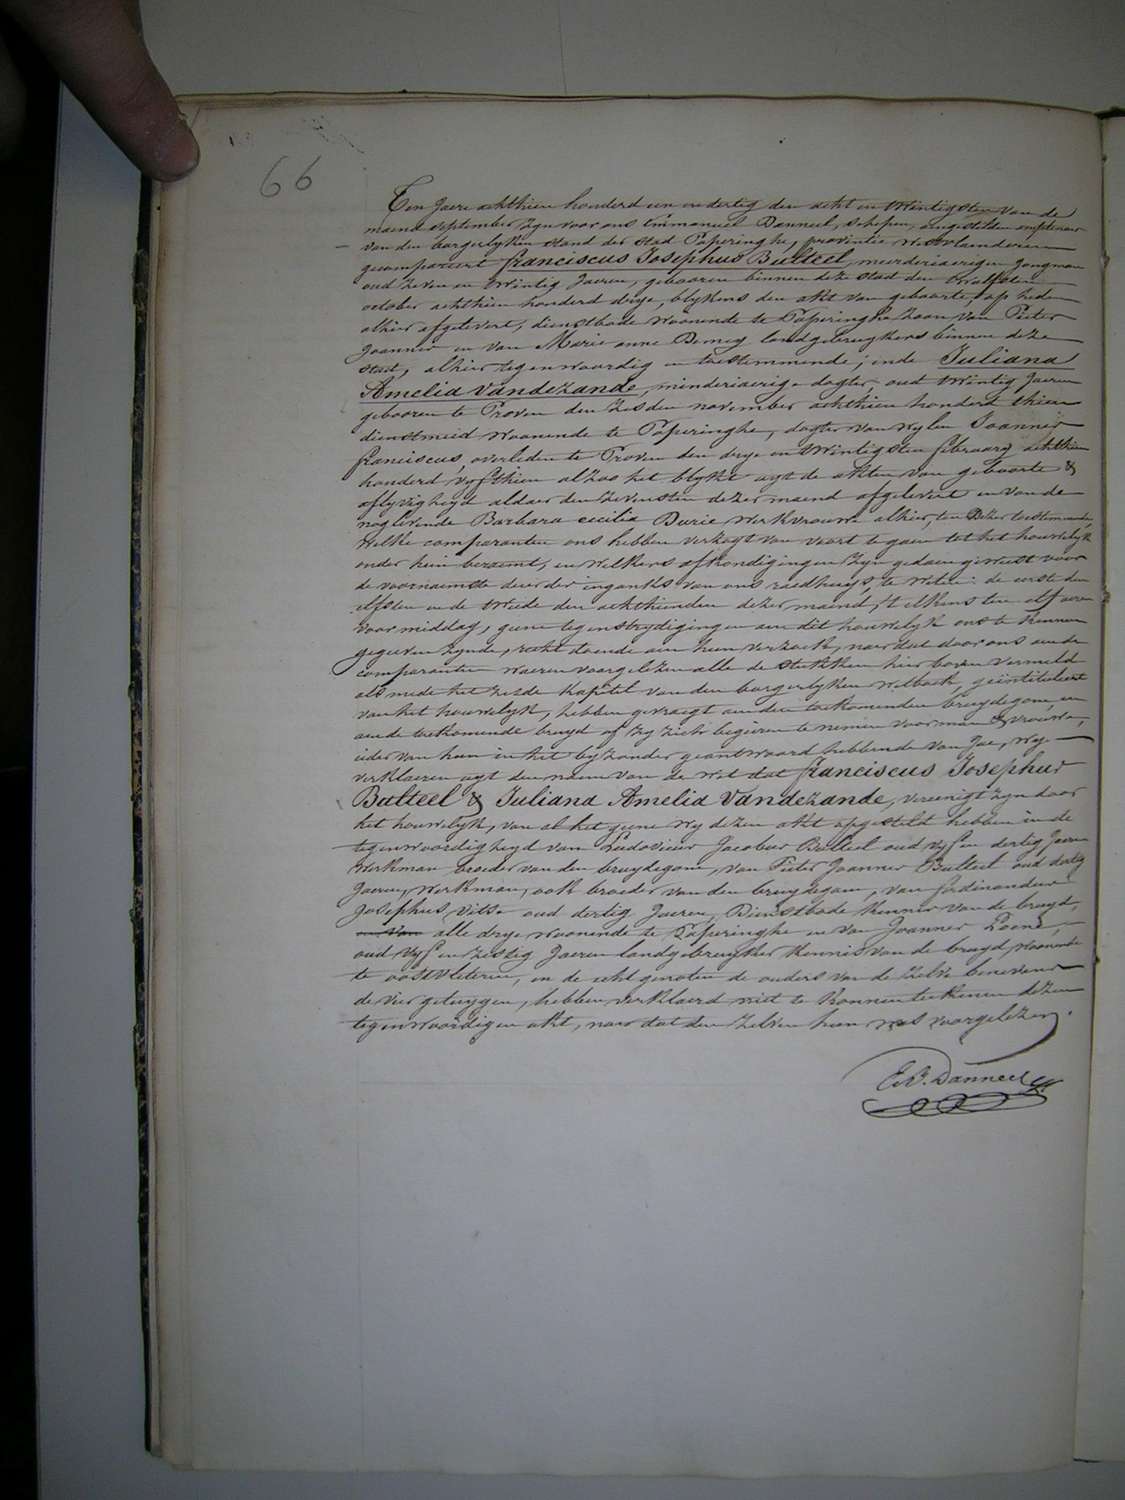 66
Ten Jaere achthien honderd een en dertig den acht en twintigsten van de
maend september zyn voor ons Emmanuel Danneel, schepen, aengestelden amptenaer
van den borgerlyken stand der stad Poperinghe, provintie Westvlaenderen
gecompareert franciscus Josephus Bulteel, meerderjaerigen jongman
oud zeven en twintig Jaeren, gebooren binnen deze stad den twalfsten
october achthien honderd drye, blykens den akt van geboorte, op heden
alhier afgelevert, dienstbode woonende te Poperinghe zoon van Pieter
Joannes en van Marie anne Demey landgebruykers binnen deze
stad, alhier tegenwoordig en toestemmende; ende Juliana
Amelia Vandezande, minderjaerige dogter, oud twintig Jaeren
gebooren te Proven den zesden november achthien honderd thien
dienstmeid woonende te Poperinghe, dogter van wylen Joannes
franciscus, overleden te Proven den drye en twintigsten febraary achthien
honderd vyfthien alzoo het blykt uyt de akten van geboorte &
aflyvigheyd aldaer den zevensten dezer maend afgelevert en van de
noglevende Barbara cecilia Durie werkvrouwe alhier, ten dezer toestemmende,
Welke comparanten ons hebben verzogt van voort te gaen tot het houwelyk
onder hun beraemt, en welkers afkondigingen zyn gedaen geweest voor
de voornaemste deur der ingank van ons raedhuys, te weten: de eerste den
elfsten en de tweede den achthienden dezer maend, 't elkens ten elf uren
voormiddag, geene tegenstrydigingen aen dit houwelyk ons te kennen
gegeven zynde, recht doende aen hun verzoek, naer dat door ons aen de
comparanten waeren voorgelezen alle de stukken hier boven vermeld
als mede het zesde kapittel van den borgerlyken wetboek, geintituleert
van het houwelyk, hebben gevraegt aen den toekomenden bruydegom, en
aen de toekomende bruyd of zy zich begeeren te nemen voor man & vrouwe,
ieder van hun in het byzonder geantwoord hebbende van Jae, wy
verklaeren uyt den naem van de wet dat franciscus Josephus
Bulteel & Juliana Amelia Vandezande, vereenigt zyn door
het houwelyk, van al het geene wy dezen akt opgesteld hebben in de
tegenwoordigheyd van Ludovicus Jacobus Bulteel oud vyf en dertig Jaeren
Werkman broeder van den bruydegom, van Pieter Joannes Bulteel oud dertig
Jaeren, werkman, ook broeder van den bruydegom, van ferdinandus
Josephus Vitse oud dertig Jaeren, Dienstbode kennis van de bruyd,
en van alle drye woonende te Poperinghe en van Joannes Loene,
oud vyf en zestig Jaeren landgebruyker kennis van de bruyd, woonende
te oostvleteren, en de echtgenoten de ouders van de zelve benevens
de vier getuygen, hebben verklaerd niet te konnen teekenen dezen
tegenwoordigen akt, naer dat den zelven hun was voorgelezen.
E. P. Danneel